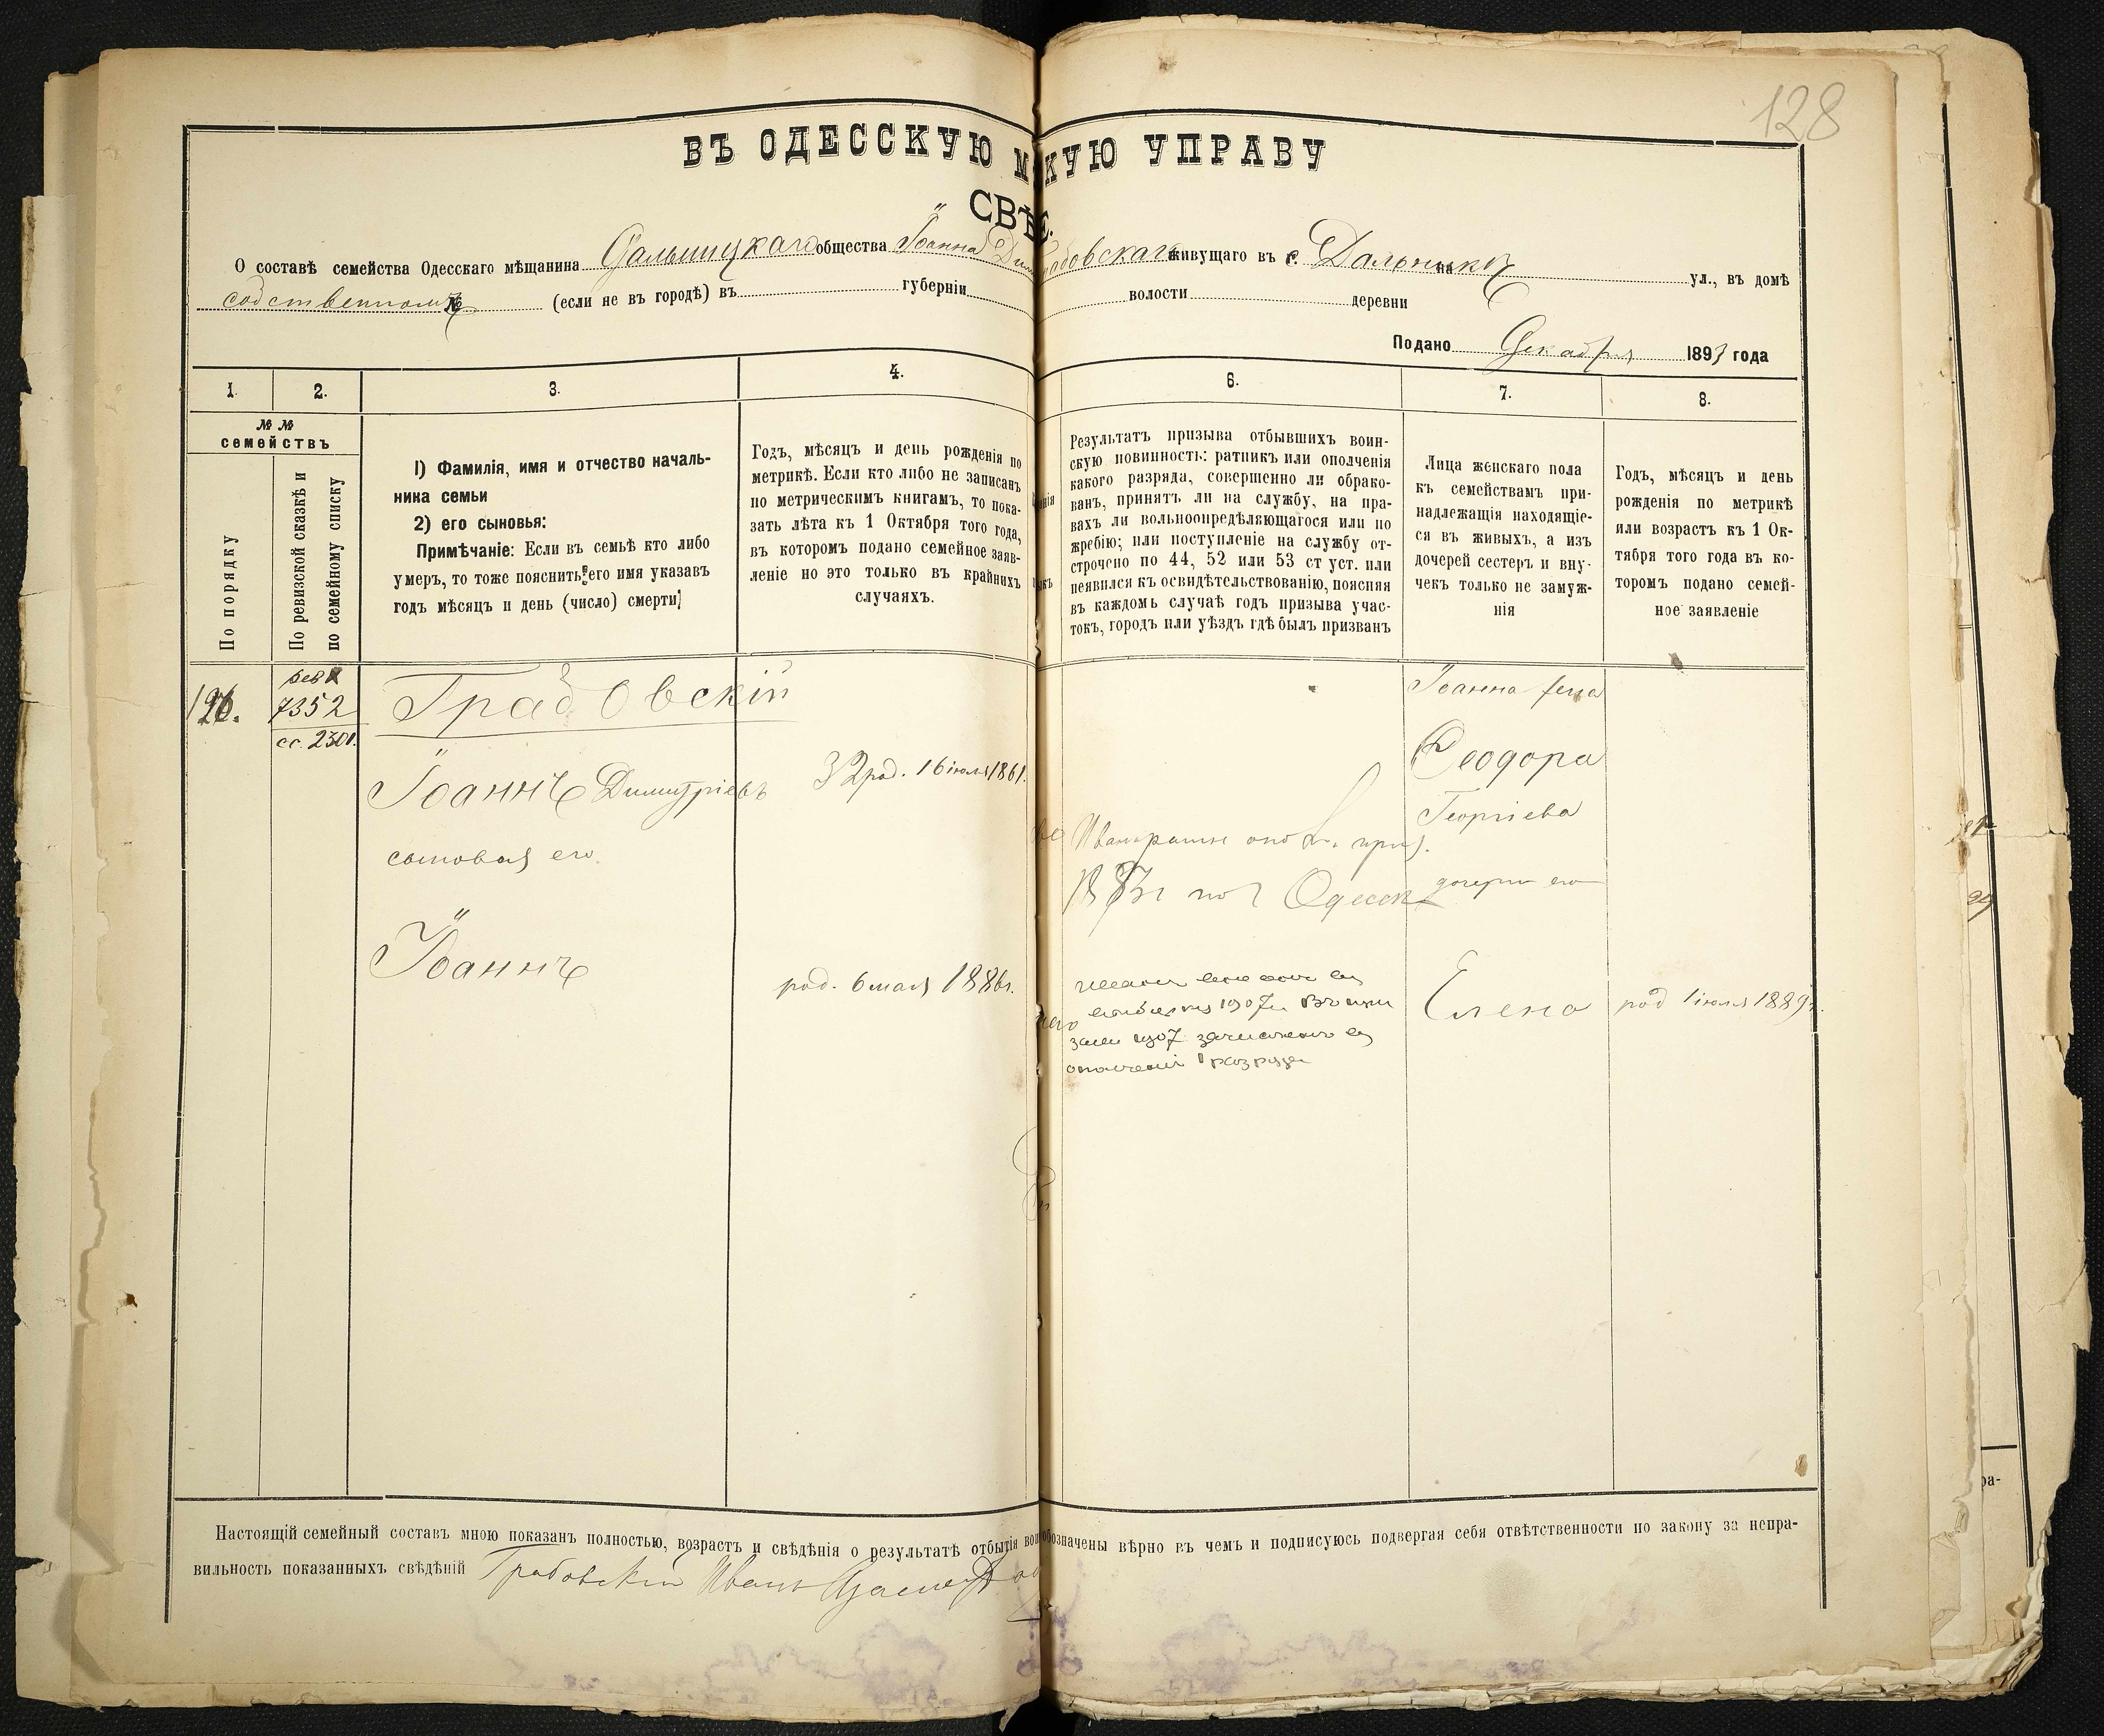 128
ВЪ ОДЕССКУЮ М КУЮ УПРАВУ
СВѢ Е.
О составѣ семейства Одесскаго мѣщанина Дальницкаго общества Іоанна Дим рабовскаго живущаго въ с. Дальникъ ул., въ домѣ
собственномъ № (если не въ городѣ) въ губерніи волости деревни
Подано Декабря 1893 года
1. 2. 3. 4. 6. 7. 8.
№ № семействъ
По порядку
По ревизской сказкѣ и по семейному списку
1) Фамилія, имя и отчество началь-
ника семьи
2) его сыновья:
Примѣчаніе: Если въ семьѣ кто либо
умеръ, то тоже пояснить его имя указавъ
годъ мѣсяцъ и день (число) смерти;
Годъ, мѣсяцъ и день рожденія по
метрикѣ. Если кто либо не записанъ
по метрическимъ книгамъ, то пока-
зать лѣта къ 1 Октября того года,
въ которомъ подано семейное заяв-
леніе но это только въ крайнихъ
случаяхъ.
Результатъ призыва отбывшихъ воин-
скую повинность: ратникъ или ополченія
какого разряда, совершенно ли обрако-
ванъ, принятъ ли на службу, на пра-
вахъ ли вольноопредѣляющагося или по
жребію; или поступленіе на службу от-
строчено по 44, 52 или 53 ст уст. или
неявился къ освидѣтельствованію, поясняя
въ каждомъ случаѣ годъ призыва учас-
токъ, городъ или уѣздъ гдѣ былъ призванъ
Лица женскаго пола
къ семействамъ при-
надлежащія находящіе-
ся въ живыхъ, а изъ
дочерей сестеръ и вну-
чекъ только не замуж-
нія
Годъ, мѣсяцъ и день
рожденія по метрикѣ
или возрастъ къ 1 Ок-
тября того года въ ко-
торомъ подано семей-
ное заявленіе
рев
7352
сс. 2301.
Грабовскій
Іоаннъ Димитріевъ
32 род. 16 іюля 1861.
Іоанна жена
Ѳеодора
Георгіева
сыновья его
дочери его
Іоаннъ
род. 6 мая 1886г.
1907
1907 зачисленъ въ
ополченіе 1 разряда
Елена
род 1 іюля 1889г.
Настоящій семейный составъ мною показанъ полностью, возрастъ и свѣдѣнія о результатѣ отбытія вои обозначены вѣрно въ чемъ и подписуюсь подвергая себя отвѣтственности по закону за непра-
вильность показанныхъ свѣдѣній Грабовскій Иванъ